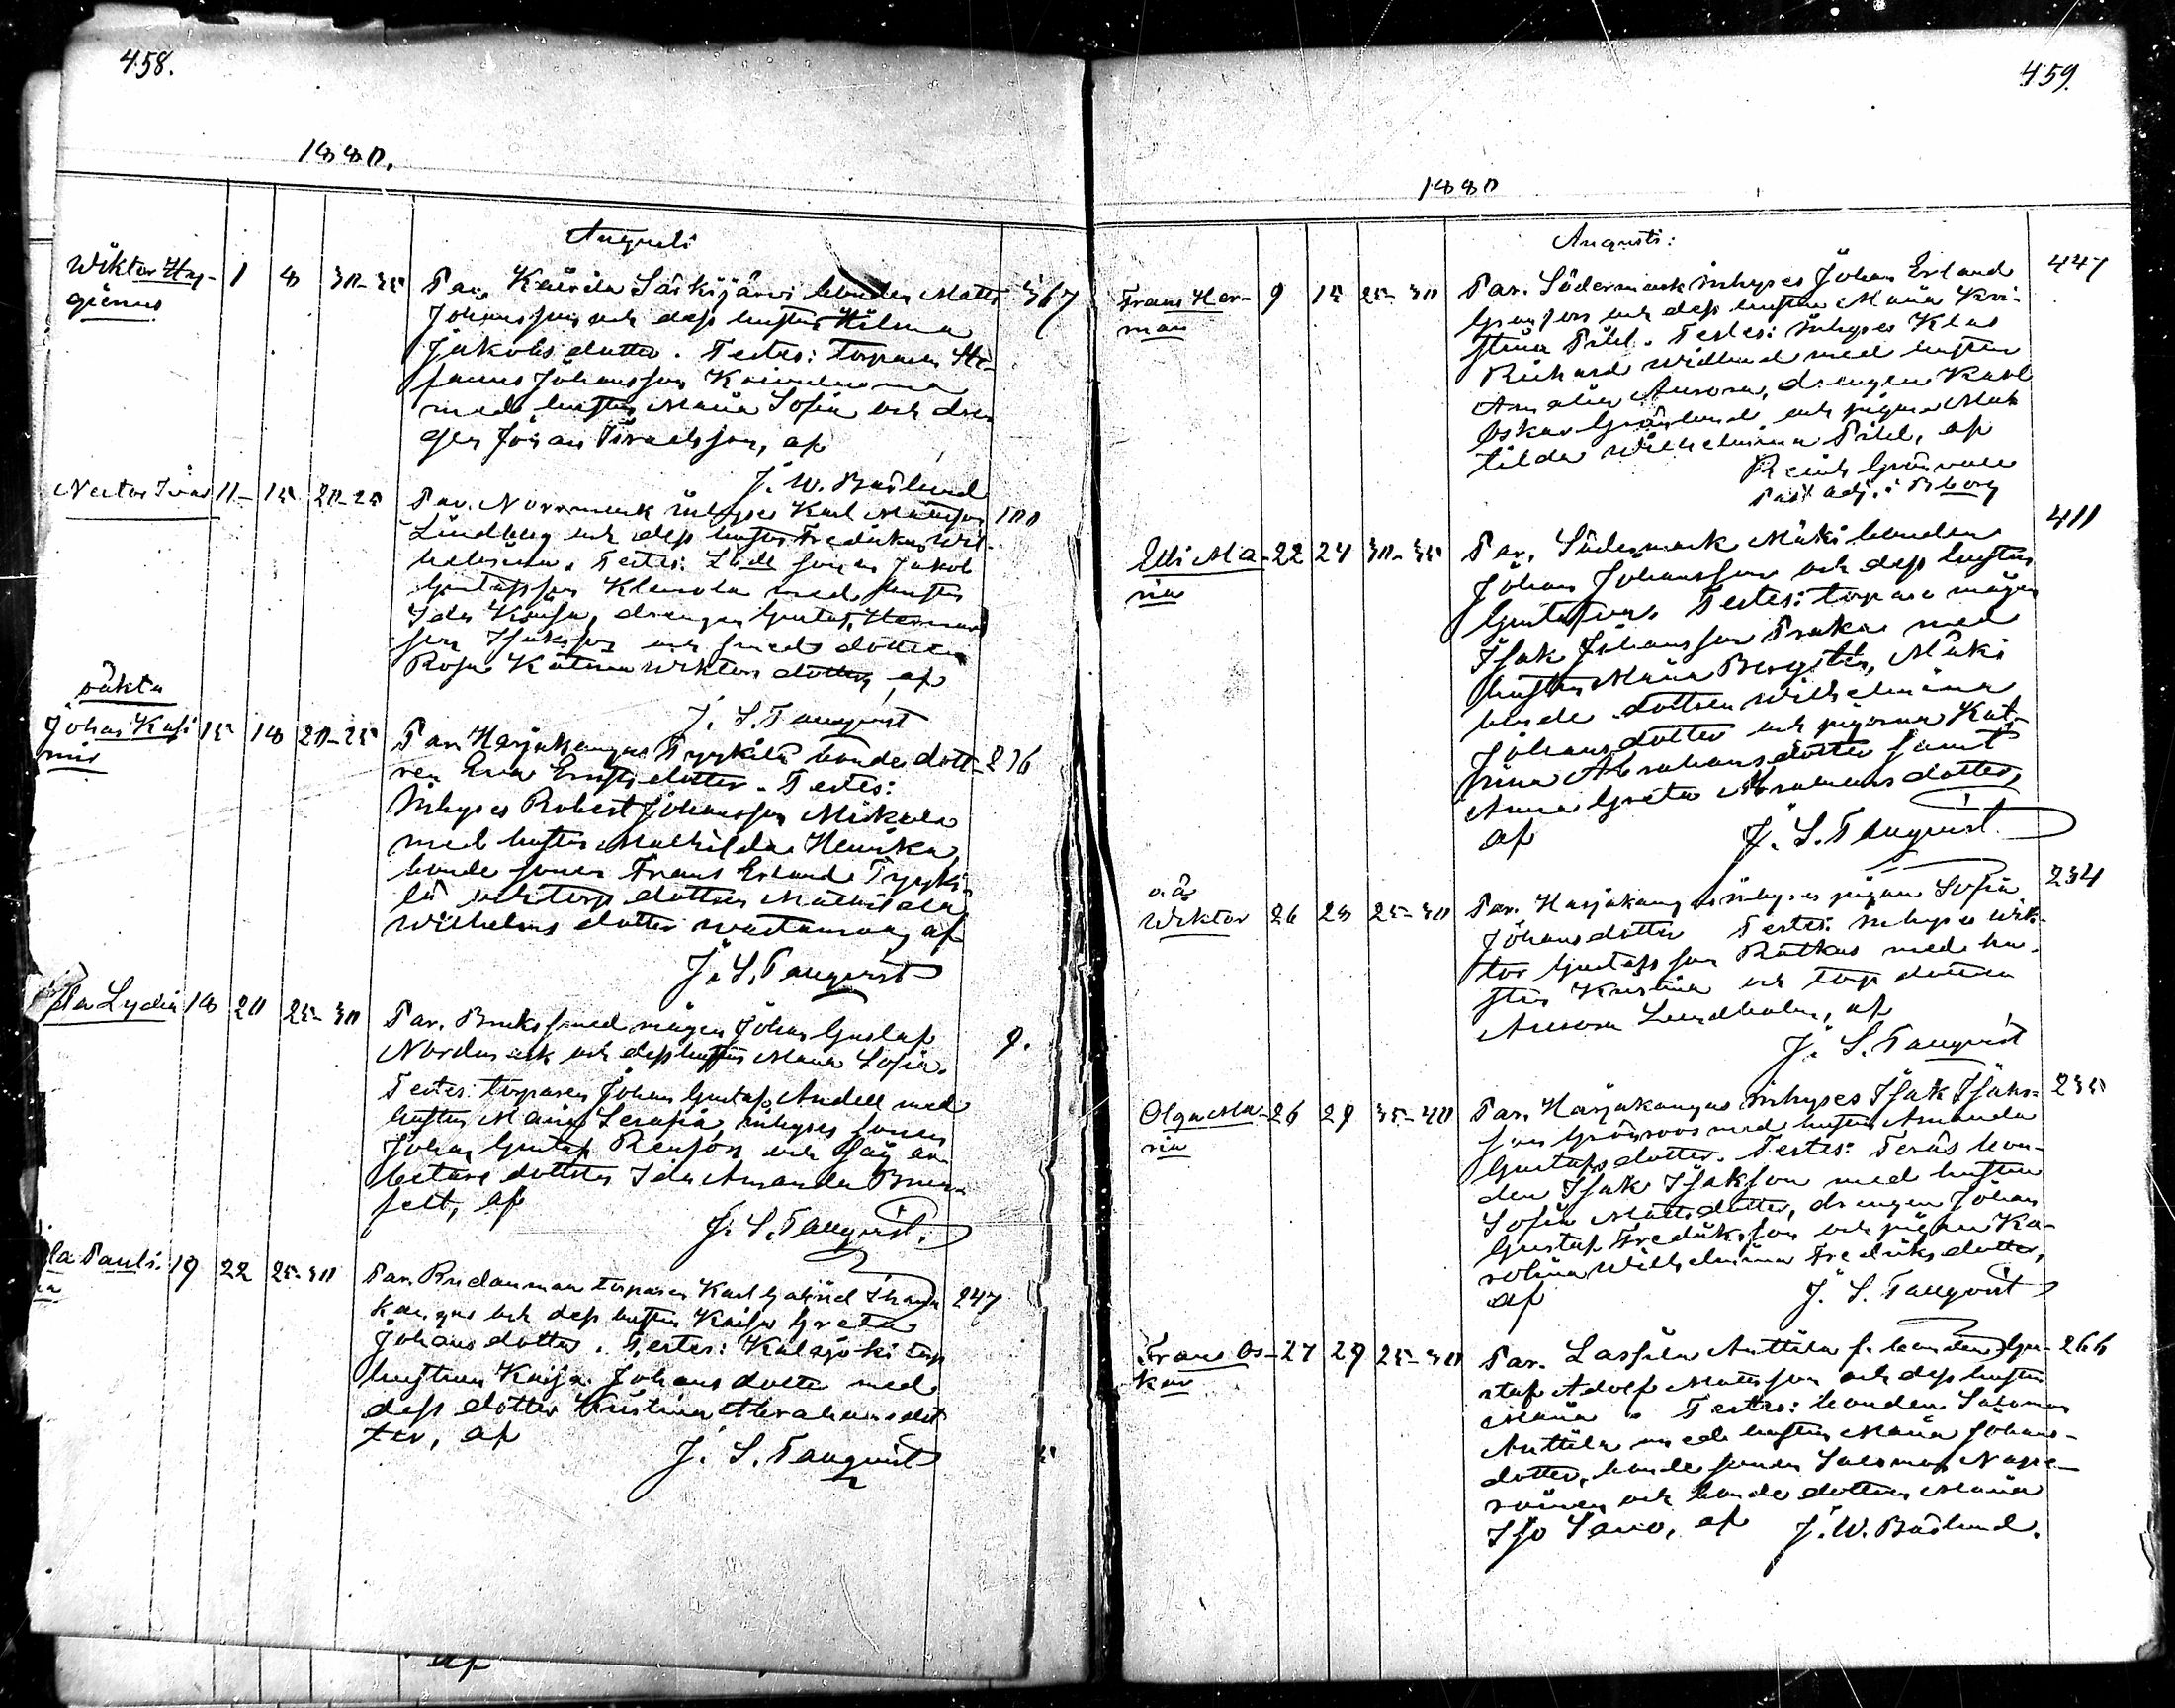 458.
1880.
Augusti
Wiktor Hygienus 1 8 30-35 Par. Kairila Särkijärvi bonden Matts 367
Johansson och dess hustru Hilma
Jakobsdotter. Testes: torparen Stefanus
Johansson
med hustru Maria Sofia och drengen
Johan Israelsson, af
J. W. Baslund
Nestor Ivar 11 15 20-25 Par. Norrmark inhyses Karl Mattsson 100
Lindberg och dess hustru Fredrika Wilhelmina.
Testes: sonen Jakob
Gustafsson Klemola med hustru
Ida Kaisa, drengen Gustaf Hermansson
Isaksson och smeds dottren
Rosa Katrina Wiktors dotter, af
J. S. Tanqvist
oäkta
Johan Kasimir 15 18 20-25 Par. Harjakangas Pyykilä bonde dottren 236
Eva Ernsts dotter. Testes:
Inhyses Robert Johansson Mickala
med hustru Mathilda Henrika,
bonde sonen Frans Erland Pyykilä
och torp dottren Mathilda
Wilhelms dotter, af
J. S. Tanqvist
Lydia 18 20 25-30 Par. Bruks smed mågen Johan Gustaf 9.
Nordmark och dess hustru Maria Sofia.
Testes: torparen Johan Gustaf Andell med
hustru Maria Serafia, inhyses sonen
Johan Gustaf Renfors och såg arbetare
dottren Ida Amanda
felt, af
J. S. Tanqvist.
la Pauli- 19 22 25-30 Par. Rudanmaa torparen Karl Gabriel 247
kangas och dess hustru Kaisa Greta
Johans dotter. Testes: Kalajoki torp
hustrun Kaisa Johans dotter med
dess dotter Kristina Abrahams dotter,
af
J. S. Tanqvist
af
459.
1880
Augusti:
Frans Herman 9 15 25-30 Par. Södermark inhyses Johan Erland 447
Granfors och dess hustru Maria Kristina
Pihl. Testes: Inhyses Klas
Richard Widlund med hustru
Amalia Aurora, drengen Karl
Oskar Grönlund och pigan Matilda
Wilhelmina Pihl, af
Grönvall
Past. adj. i Bborg
Elli Maria 22 24 30-35 Par. Södermark Mäki bonden 411
Johan Johansson och dess hustru
Gustafva. Testes: torpare mågen
Isak Johansson Praka med
hustru Maria Bergsten, Mäki
bonde dottren Wilhelmina
Johansdotter och pigorna Katrina
Abrahams dotter samt
Anna Greta Abrahams dotter,
af J. S. Tanqvist
o. ä.
Wiktor 26 28 25-30 Par. Harjakangas inhyses pigan Sofia 234
Johans dotter Testes: Inhyses Wiktor
Gustafsson Ratkas med hustru
Kristina och torp dottren
Aurora Lundholm, af
J. S. Tanqvist
Olga Maria 26 29 35-40 Par. Harjakangas Inhyses Isak Isaksson 235
Grönroos med hustru Amanda
Gustafs dotter. Testes: Teräs bonden
Isak Isaksson med hustru
Sofia Matts dotter, drengen Johan
Gustaf Fredriksson och pigan Karolina
Wilhelmina Fredriks dotter,
af J. S. Tanqvist
Frans Oskar 27 29 25-30 Par. Lassila Anttila f. bonden Gustaf 266
Adolf Mattsson och dess hustru
Maria. Testes: bonden Salomon
Anttila med hustru Maria Johans
dotter, bonde sonen Salomon
och bonde dottren Maria
Iso Savo, af J. W. Baslund.